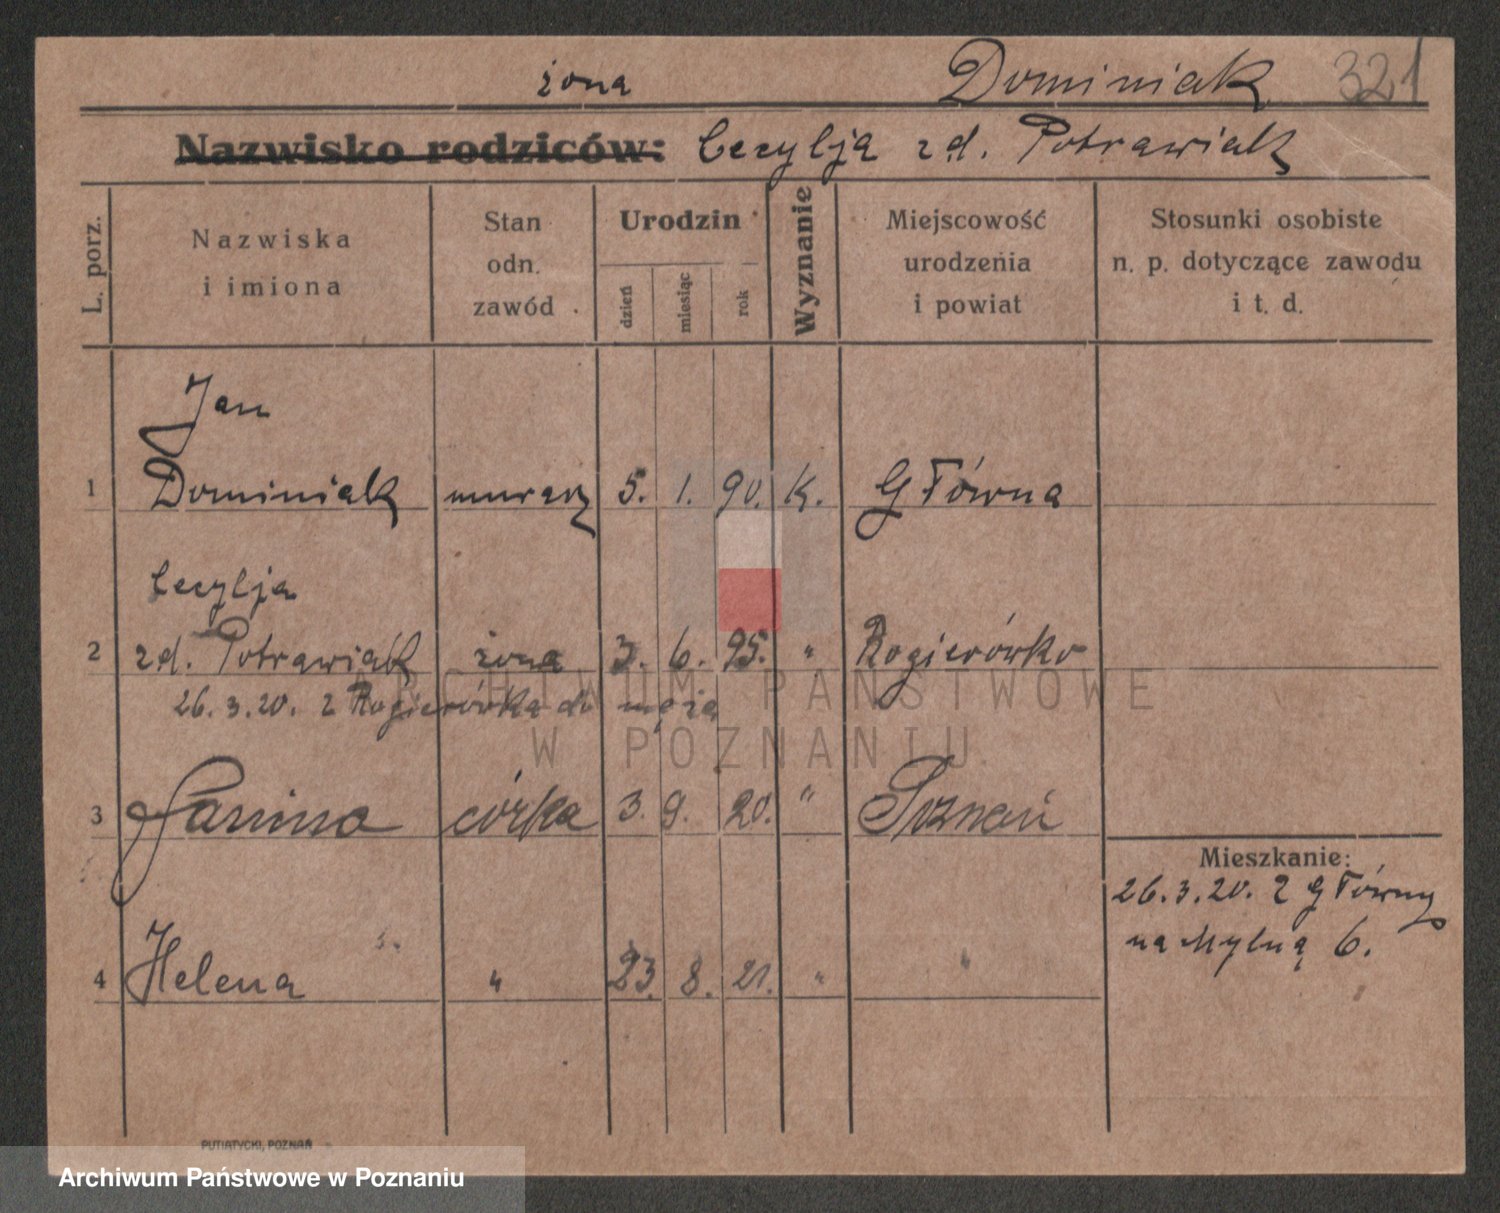 żona Dominiak 321
Nazwisko rodziców: Cecylja zd. Potrawiak
L. porz.
Nazwiska
i imiona
Stan
odn.
zawód
Urodzin
dzień
miesiąc
rok
Wyznanie
Miejscowość
urodzenia
i powiat
Stosunki osobiste
n. p. dotyczące zawodu
i t. d.
Jan
1 Dominiak murarz 5. 1. 90. K. Główna
Cecylja
2 zd. Potrawiak żona 3. 6. 95. " Rogierówko
26.3.20. z Rogierówka do męża
3 Janina córka 3. 9. 20. " Poznań
Mieszkanie:
26.3.20. z Główny
na Mylną 6.
4 Helena " 23. 8. 21. " "
PUTIATYCKI, POZNAŃ
ARCHIWUM PAŃSTWOWE
W POZNANIU
Archiwum Państwowe w Poznaniu